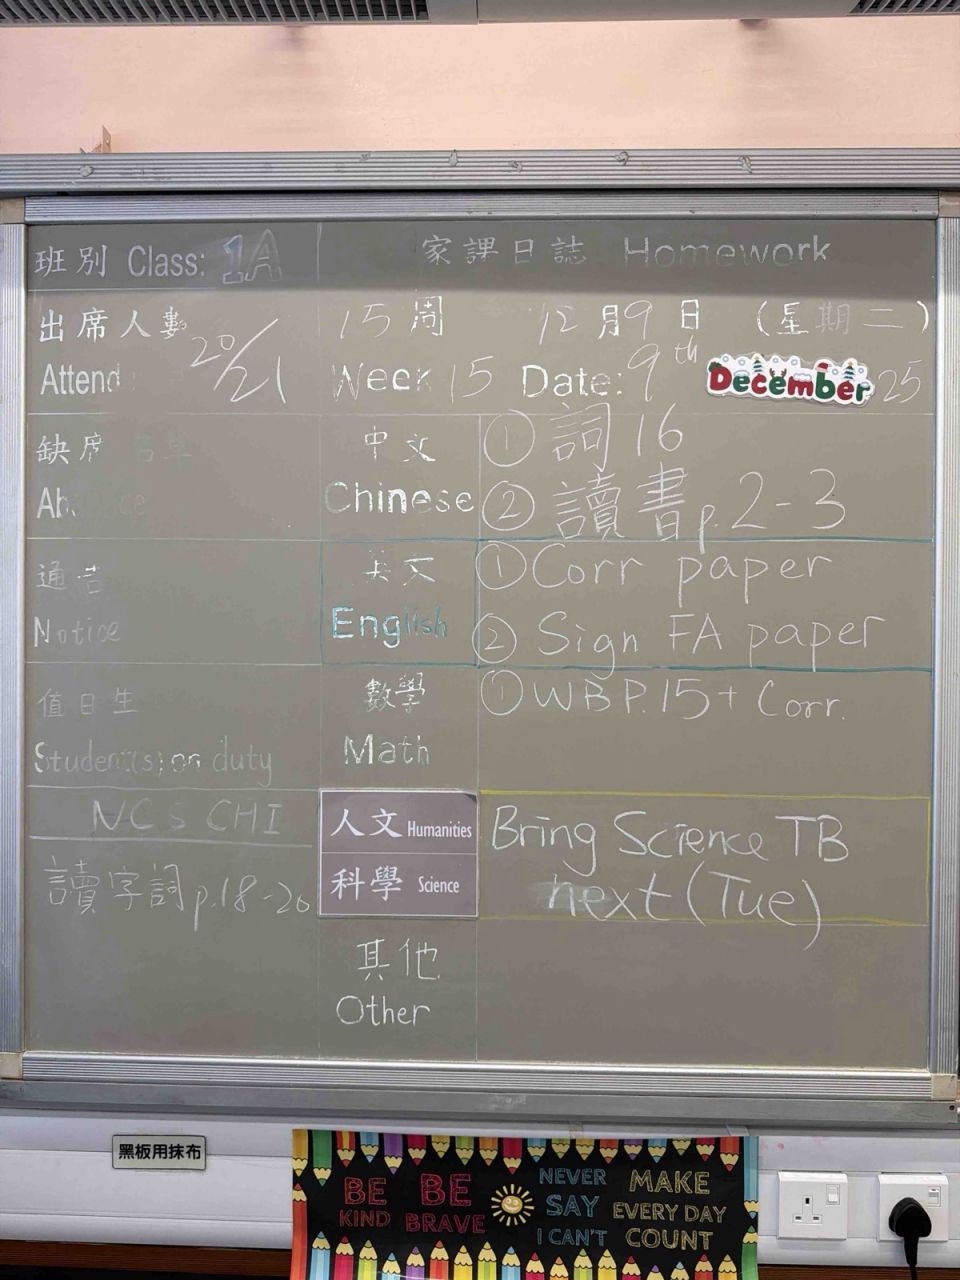 班別 Class: 1A
家課日誌 Homework
出席人數
Attend
20/21
15周 12月9日 (星期二)
Week 15 Date: 9th December 25
缺席
中文
Chinese
① 詞 16
② 讀書 p.2-3
通告
Notice
英文
English
① Corr paper
② Sign FA paper
值日生
Student(s) on duty
數學
Math
① WB P.15 + Corr.
NCS CHI
讀字詞 p.18-20
人文 Humanities
科學 Science
Bring Science TB
next (Tue)
其他
Other
黑板用抹布
BE KIND
BE BRAVE
NEVER SAY I CAN'T
MAKE EVERY DAY COUNT